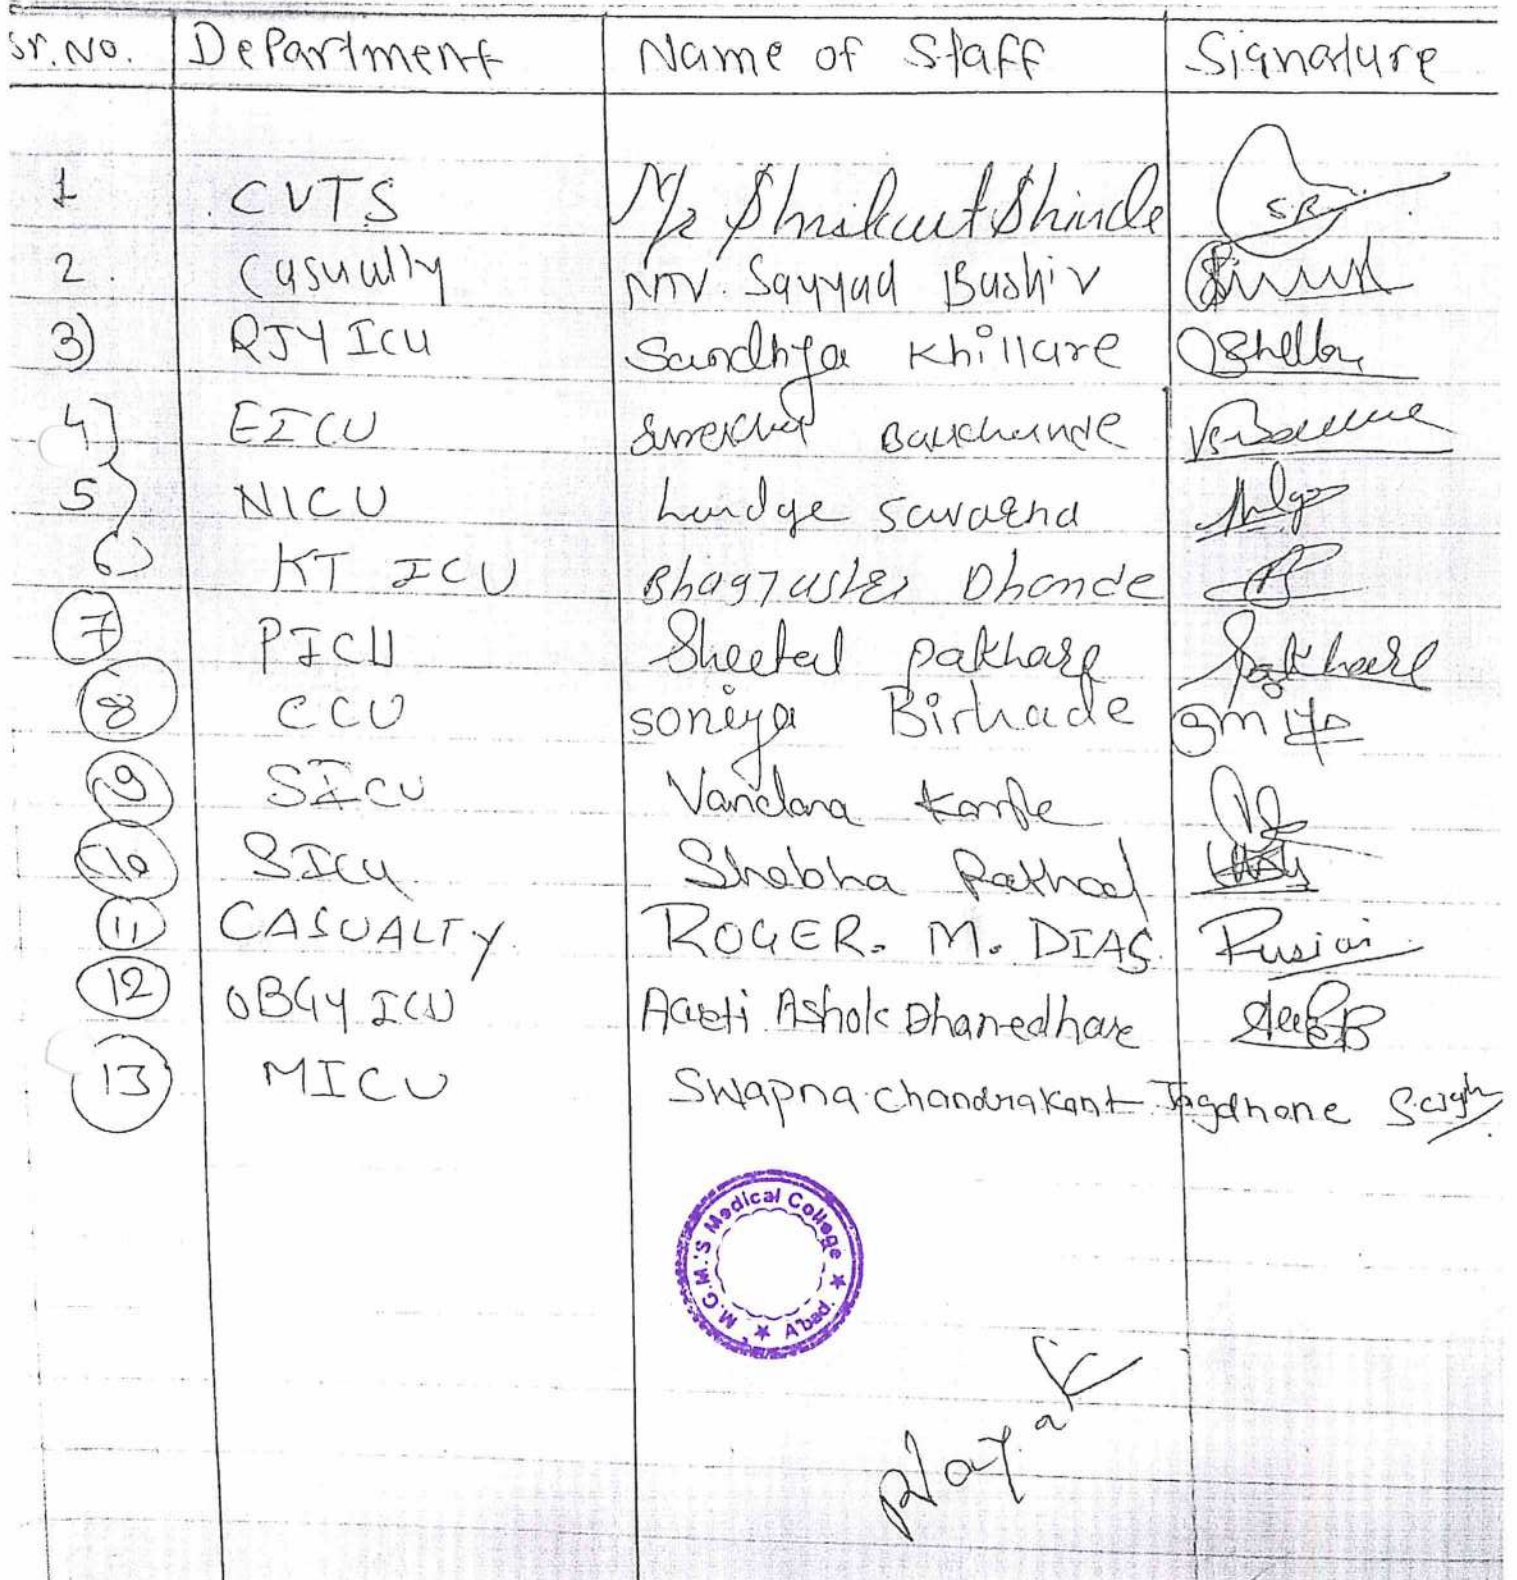 Sr. No. Department Name of Staff Signature
1 CVTS Mr Shrikant Shinde S.R.
2. Casuality Mr. Sayyad Bashir
3) RJY ICU Sandhya Khillare
4) EICU
5) NICU Lundge Suvarna
6) KT ICU Dhonde
7 PICU Sheetal Pakhare Spakhare
8 CCU Soniya Birhade
9 SICU Vandana Kamble
10 SICU Shobha Rathod
11 CASUALTY. ROGER. M. DIAS
12 OBGY ICU Aarti Ashok Dhanedhar
13 MICU Swapna Chandrakant Jagdhane
M.G.M.'S Medical College ★ A'bad. ★